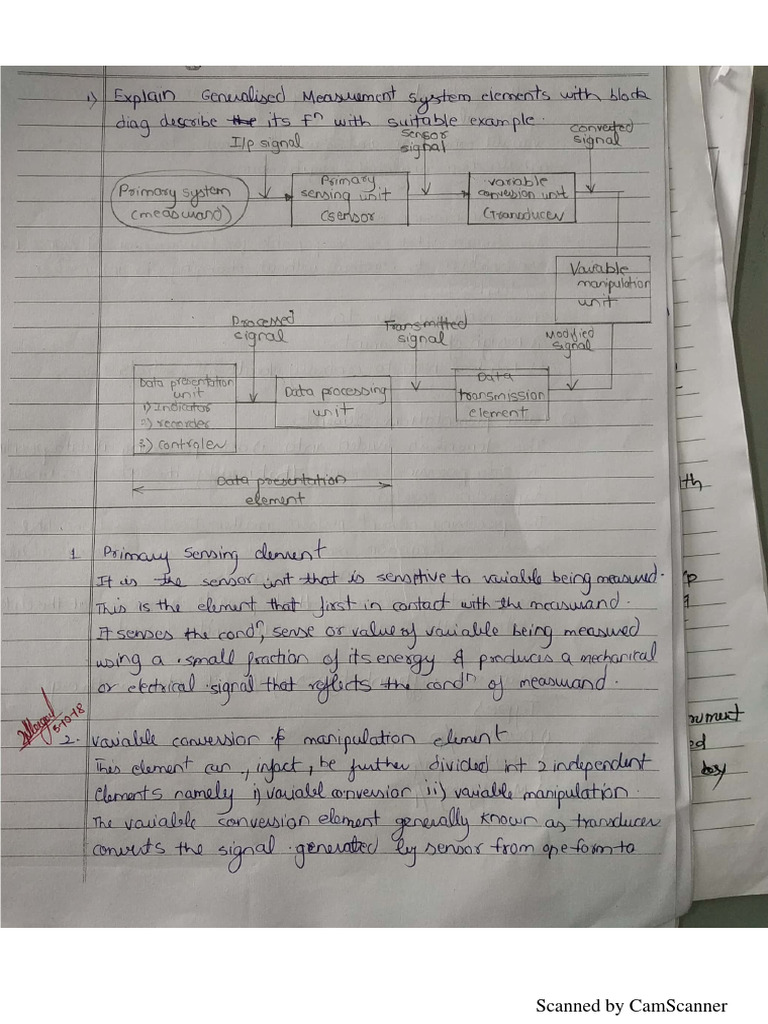 1) Explain Generalised Measurement system elements with block
diag describe the its fn with suitable example.
I/p signal
sensor signal
converted signal
Primary system (measurand)
Primary sensing unit (sensor
variable conversion unit (transducer
Variable manipulation unit
Processed signal
Transmitted signal
Modified signal
Data presentation unit
1) Indicator
2) recorder
3) controler
Data processing unit
Data transmission element
Data presentation element
1 Primary Sensing element
It is the sensor unit that is sensetive to variable being measured.
This is the element that first in contact with the measurand.
It senses the condn, sense or value of variable being measured
using a small fraction of its energy & produces a mechanical
or electrical signal that reflects the condn of measurand.
5-10-18
2. variable conversion & manipulation element
This element can, infact, be further divided int 2 independent
elements namely i) variable conversion ii) variable manipulation.
The variable conversion element generally known as transducer
converts the signal generated by sensor from one form to
ith
ed
by
Scanned by CamScanner